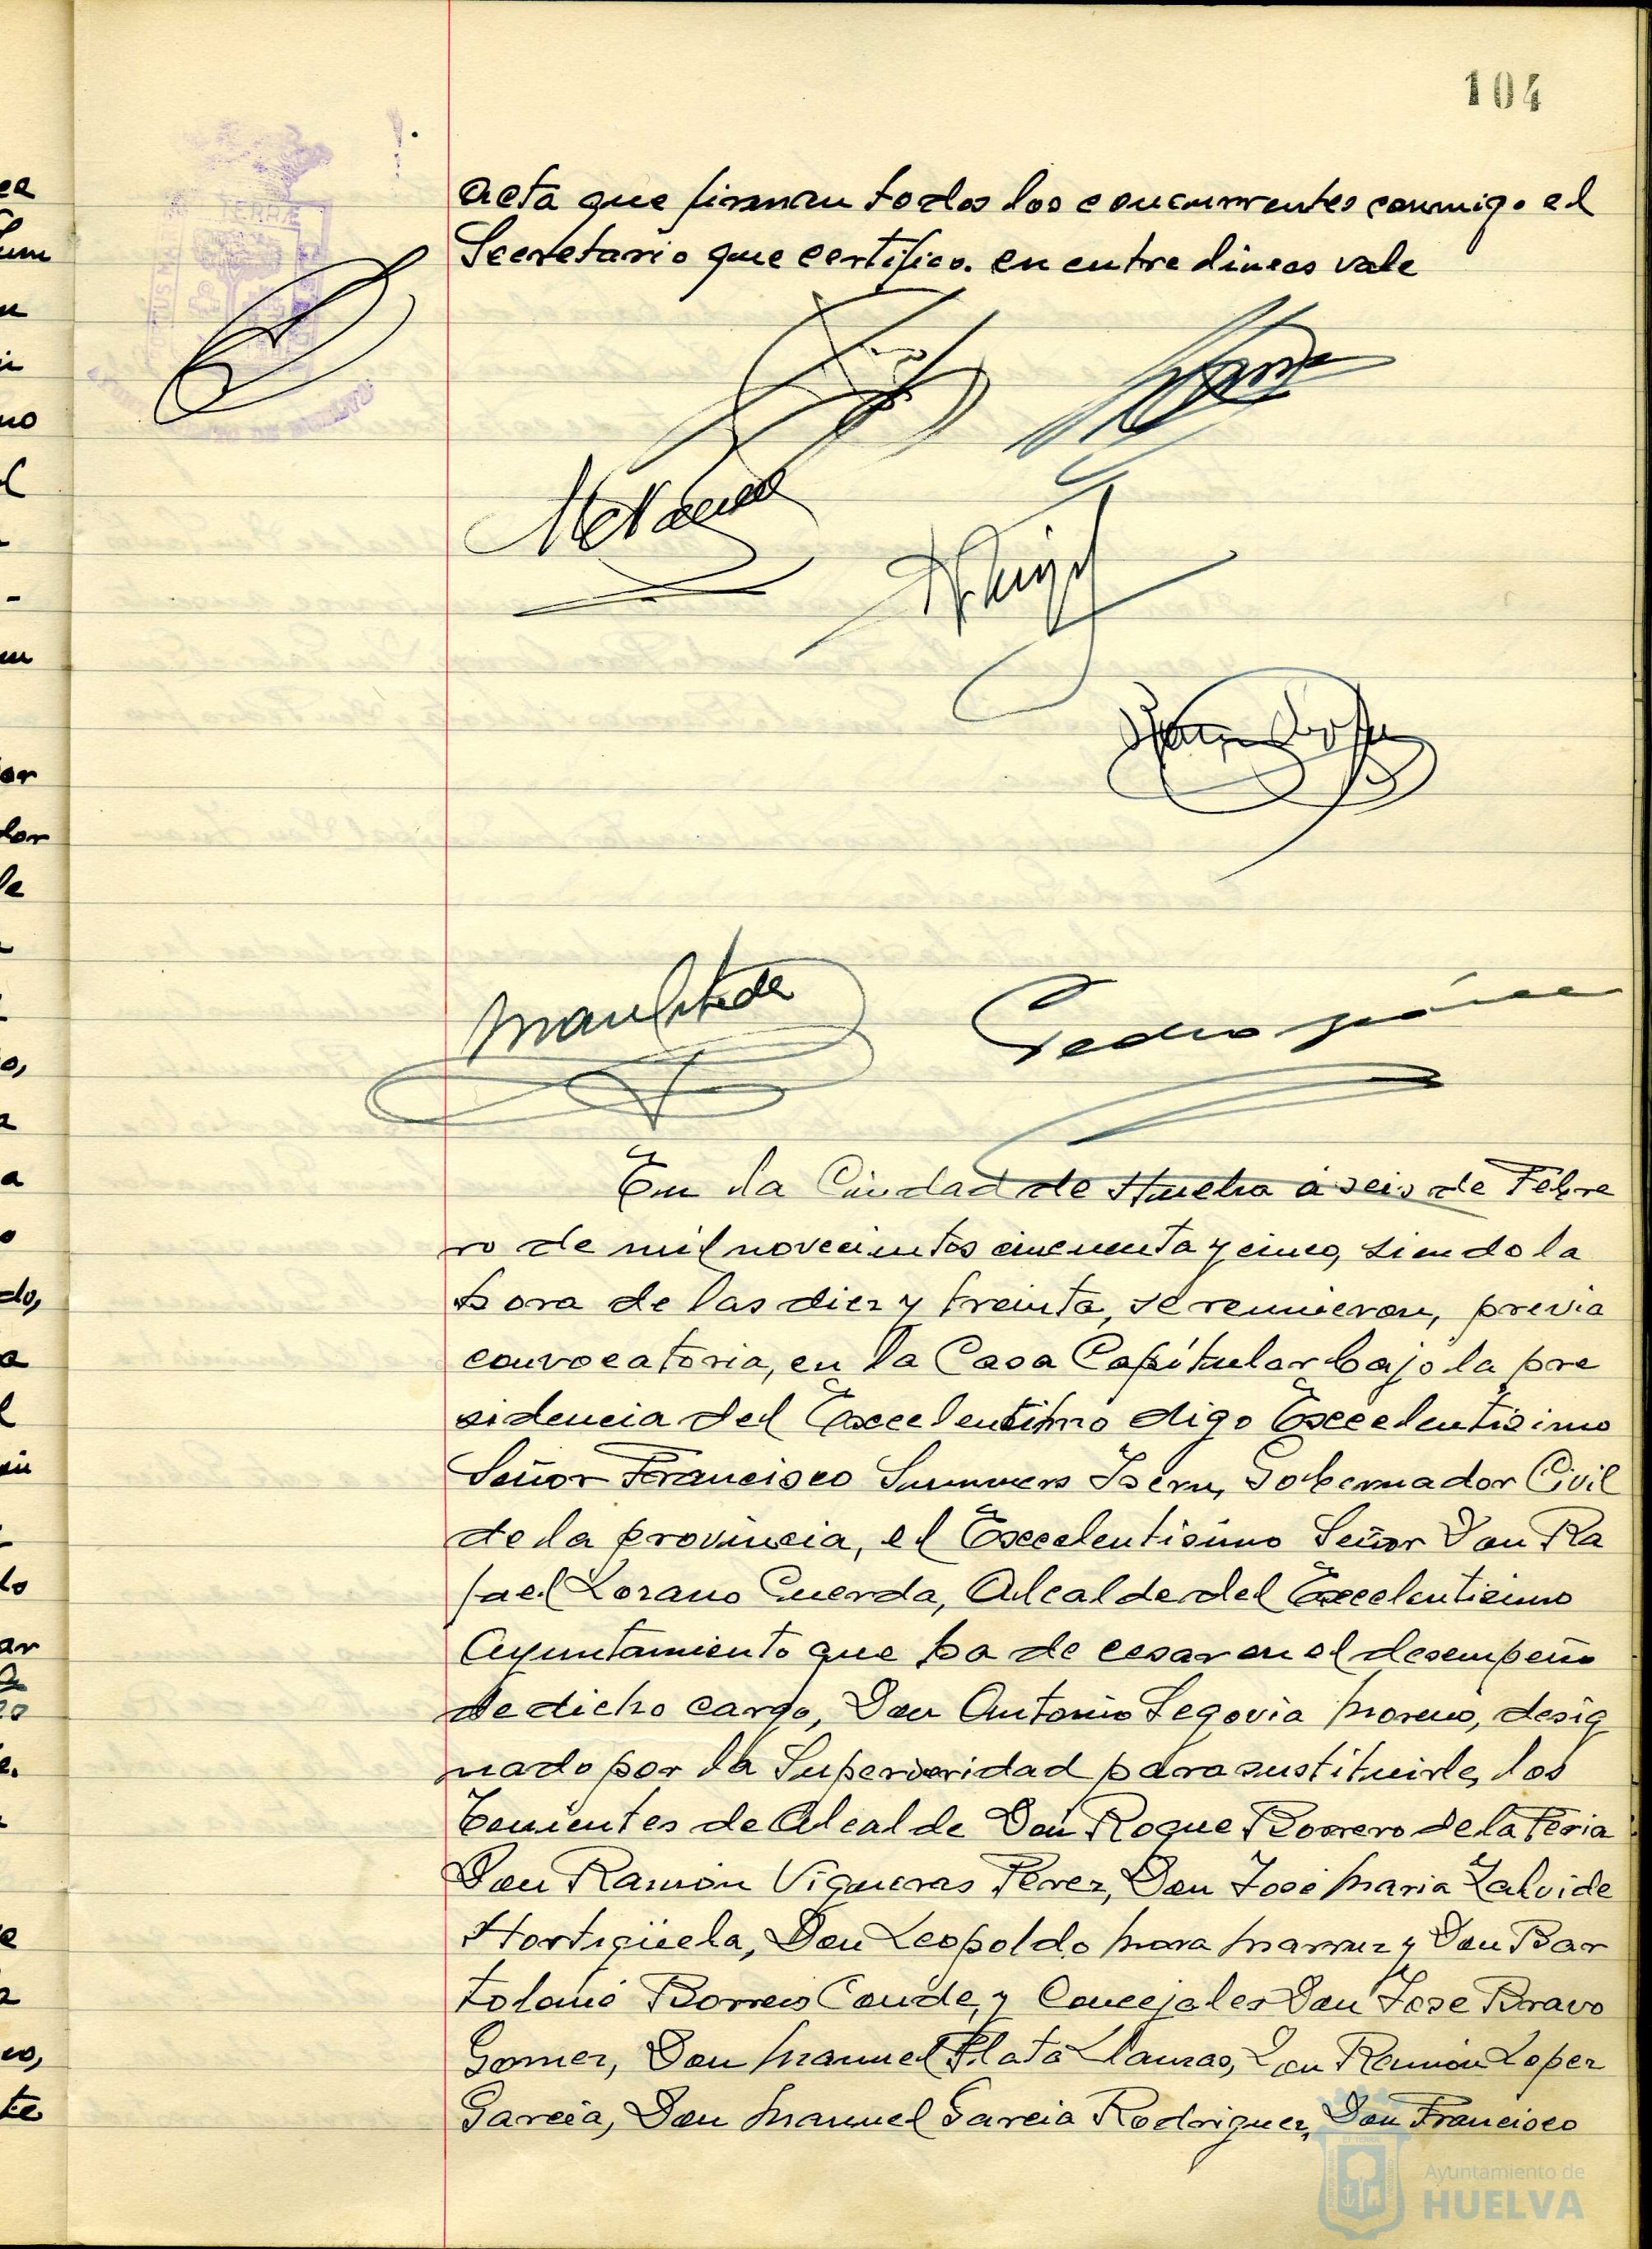 104
acta que firman todos los concurrentes conmigo el
Secretario que certifico. en entre lineas vale
TERRÆ
En la Ciudad de Huelva a seis de Febre
ro de mil novecientos cincuenta y cinco, siendo la
hora de las diez y treinta, se reunieron, previa
convocatoria, en la Casa Capitular bajo la pre
sidencia del Excelentisimo digo Excelentisimo
Señor Francisco Summers Isern, Gobernador Civil
de la provincia, el Excelentisimo Señor Don Ra
fael Lozano Cuerda, Alcalde del Excelentisimo
Ayuntamiento que ha de cesar en el desempeño
de dicho cargo, Don Antonio Segovia Moreno, desig
nado por la Superioridad para sustituirle, los
Tenientes de Alcalde Don Roque Romero de la Feria
Don Ramón Vigueras Perez, Don José Maria Zalvide
Hortigüela, Don Leopoldo Mora y Don Bar
tolomé Borrero Conde, y Concejales Don Jose Bravo
Gomez, Don Manuel Plata Llanzas, Don Ramón Lopez
Garcia, Don Manuel Garcia Rodriguez, Don Francisco
Ayuntamiento de
HUELVA